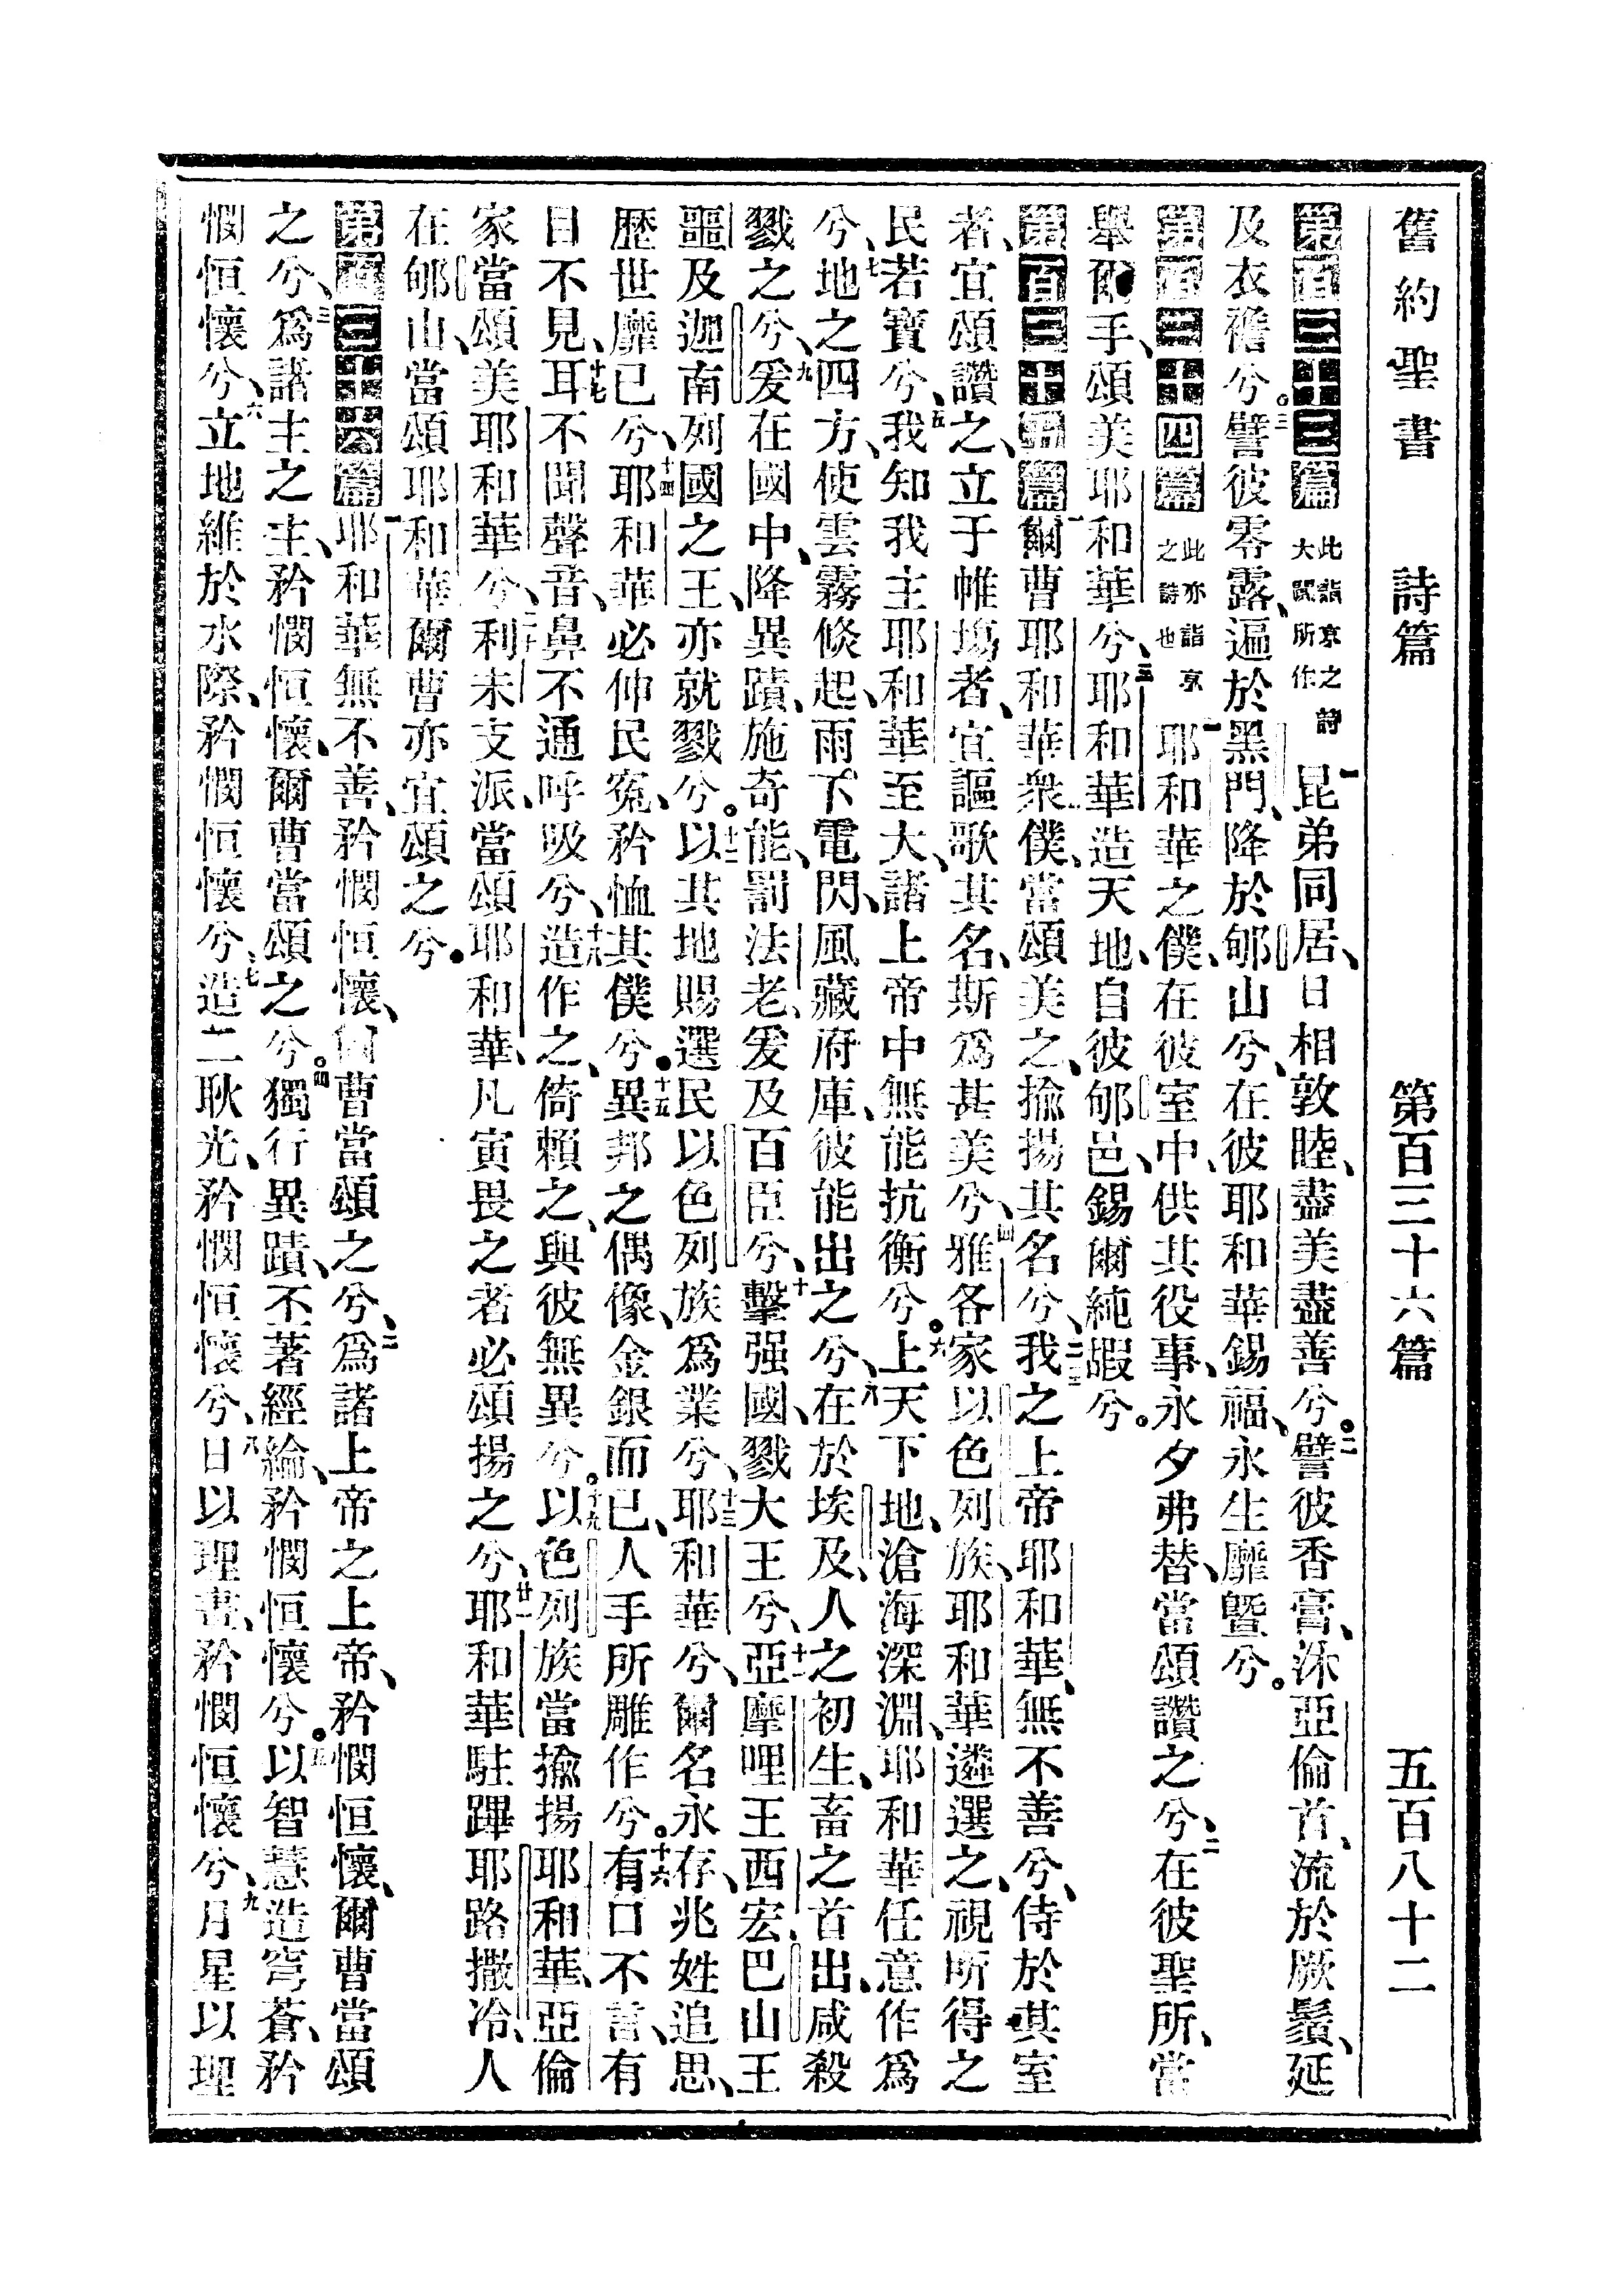 舊約聖書　詩篇　第百三十六篇　五百八十二
第百三十三篇 此詣京之詩大闢所作 一昆弟同居、日相敦睦、盡美盡善兮。二譬彼香膏、沐亞倫首、流於厥鬚、延
及衣襜兮。三譬彼零露、遍於黑門、降於郇山兮、在彼耶和華錫福、永生靡曁兮。
第百三十四篇 此亦詣京之詩也 一耶和華之僕、在彼室中、供其役事、永夕弗替、當頌讚之兮、二在彼聖所、當
舉爾手、頌美耶和華兮、三耶和華造天地、自彼郇邑、錫爾純嘏兮。
第百三十五篇 一爾曹耶和華衆僕、當頌美之、揄揚其名兮、二三我之上帝耶和華、無不善兮、侍於其室
者、宜頌讚之、立于帷塲者、宜謳歌其名、斯爲甚美兮、四雅各家以色列族、耶和華遴選之、視所得之
民若寶兮、五我知我主耶和華至大、諸上帝中無能抗衡兮。六上天下地、滄海深淵、耶和華任意作爲
兮、七地之四方、使雲霧倐起、雨下電閃、風藏府庫、彼能出之兮、八在於埃及、人之初生、畜之首出、咸殺
戮之兮、九爰在國中、降異蹟、施奇能、罰法老、爰及百臣兮、十擊强國、戮大王兮、十一亞摩哩王西宏、巴山王
噩、及迦南列國之王、亦就戮兮。十二以其地賜選民以色列族爲業兮、十三耶和華兮、爾名永存、兆姓追思、
歷世靡已兮、十四耶和華必伸民寃、矜恤其僕兮。十五異邦之偶像、金銀而已、人手所雕作兮。十六有口不言、有
目不見、十七耳不聞聲音、鼻不通呼吸兮、十八造作之、倚賴之、與彼無異兮。十九以色列族當揄揚耶和華、亞倫
家當頌美耶和華兮、二十利未支派、當頌耶和華、凡寅畏之者必頌揚之兮、廿一耶和華駐蹕耶路撒冷、人
在郇山、當頌耶和華、爾曹亦宜頌之兮。
第百三十六篇 一耶和華無不善、矜憫恒懷、爾曹當頌之兮、二爲諸上帝之上帝、矜憫恒懷、爾曹當頌
之兮、三爲諸主之主、矜憫恒懷、爾曹當頌之兮。四獨行異蹟、丕著經綸、矜憫恒懷兮。五以智慧造穹蒼、矜
憫恒懷兮、六立地維於水際、矜憫恒懷兮、七造二耿光、矜憫恒懷兮、八日以理晝、矜憫恒懷兮、九月星以理